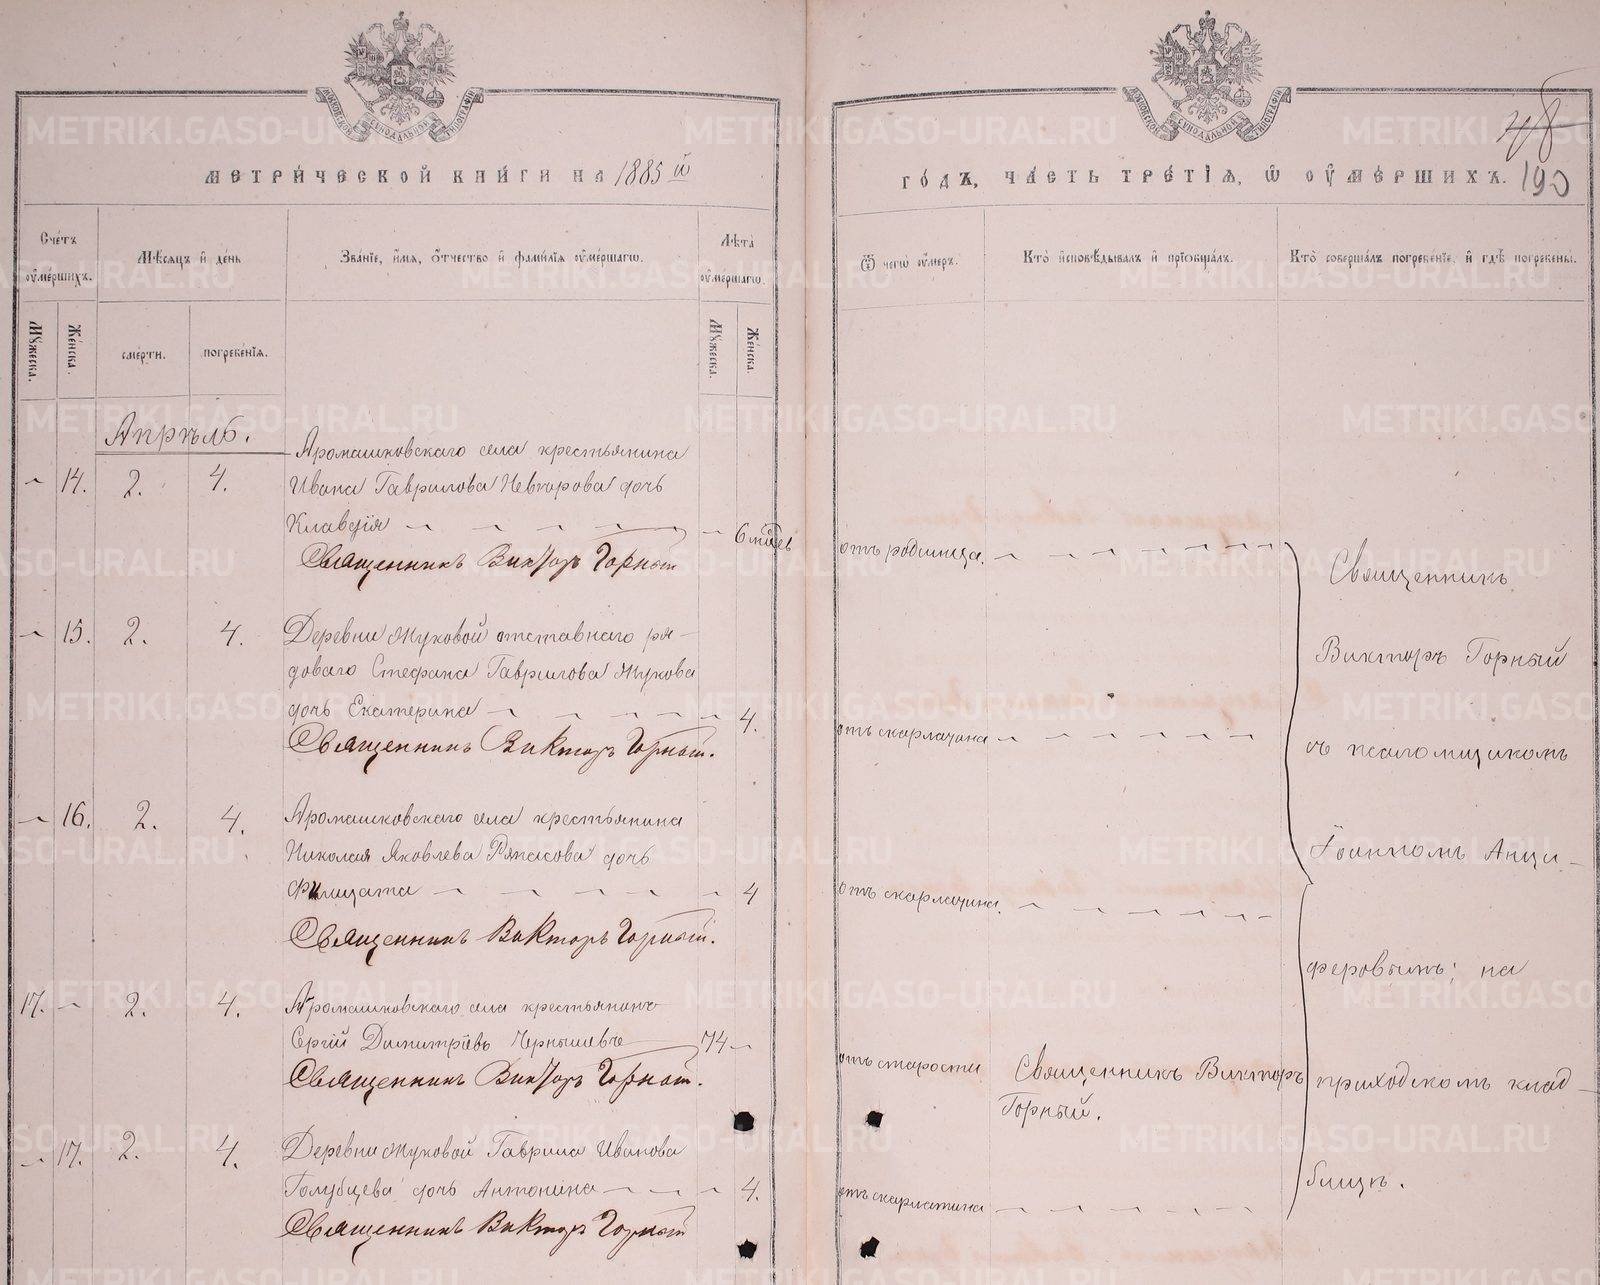 МЕТРИ́ЧЕСКОЙ КНИ́ГИ НА 1885 й
Сче́тъ ᲂу҆ме́ршихъ.
Мѣ́сяцъ и҆ де́нь
Зва́нїе, и҆́мѧ, ѻ҆́тчество и҆ фами́лїѧ ᲂу҆ме́ршагѡ.
Лѣ́та ᲂу҆ме́ршагѡ.
Мꙋ́жеска.
Же́нска.
сме́рти.
погребе́нїѧ.
Мꙋ́жеска.
Же́нска.
Апрѣль.
14. 2. 4. Аромашковскаго села крестьянина
Ивана Гаврилова Невгорова дочь
Клавдія 6 мѣс
Священникъ Викторъ Горный
15. 2. 4. Деревни Жуковой отставнаго ря-
доваго Стефана Гаврилова Жукова
дочь Екатерина 4.
Священникъ Викторъ Горный.
16. 2. 4. Аромашковскаго села крестьянина
Николая Яковлева дочь
Филицата 4
Священникъ Викторъ Горный.
17. 2. 4. Аромашковскаго села крестьянинъ
Сергій Димитріевъ Чернышевъ 74
Священникъ Викторъ Горный.
17. 2. 4. Деревни Жуковой Гавриила Иванова
Голубцева дочь Антонина 4.
Священникъ Викторъ Горный
МОСКОВСКОЙ СѴНОДАЛЬНОЙ ТИПОГРАФІИ
48
ГО́ДЪ, ЧА́СТЬ ТРЕ́ТЇѦ, Ѡ҆ ᲂУ҆МЕ́РШИХЪ. 190
Ѿ чегѡ̀ ᲂу҆́меръ.
Кто̀ и҆сповѣ́дывалъ и҆ прїѡбща́лъ.
Кто̀ соверша́лъ погребе́нїе, и҆ гдѣ̀ погребены̀.
отъ родимца.
отъ скарлатина
отъ скарлатина.
отъ старости Священникъ Викторъ
Горный.
отъ скарлатина
Священникъ
Викторъ Горный
съ псаломщикомъ
Іоанномъ Анци-
феровымъ; на
приходскомъ клад-
бищѣ.
METRIKI.GASO-URAL.RU